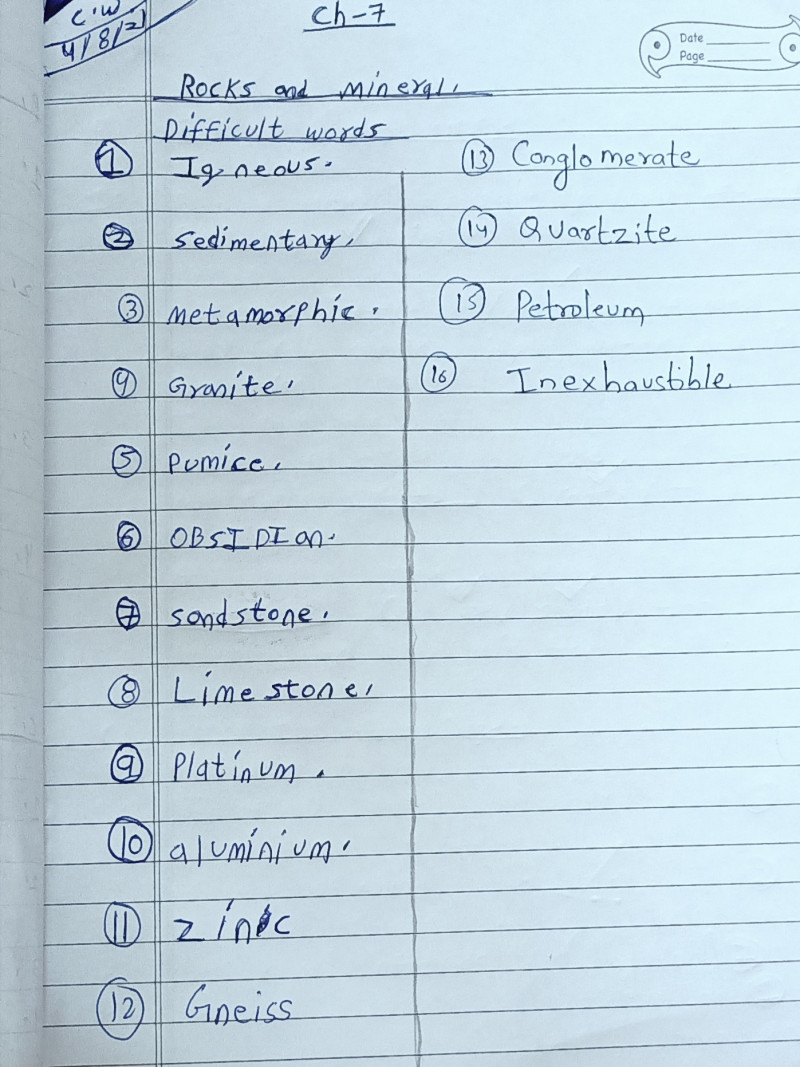 C.W.
4/8/21
Ch-7
Date
Page
Rocks and mineral.
Difficult words
1 Igneous.
2 Sedimentary.
3 Metamorphic.
4 Granite.
5 Pumice.
6 OBSIDIan.
7 Sandstone.
8 Lime stone.
9 Platinum.
10 aluminium.
11 zinc
12 Gneiss
13 Conglomerate
14 Quartzite
15 Petroleum
16 Inexhaustible